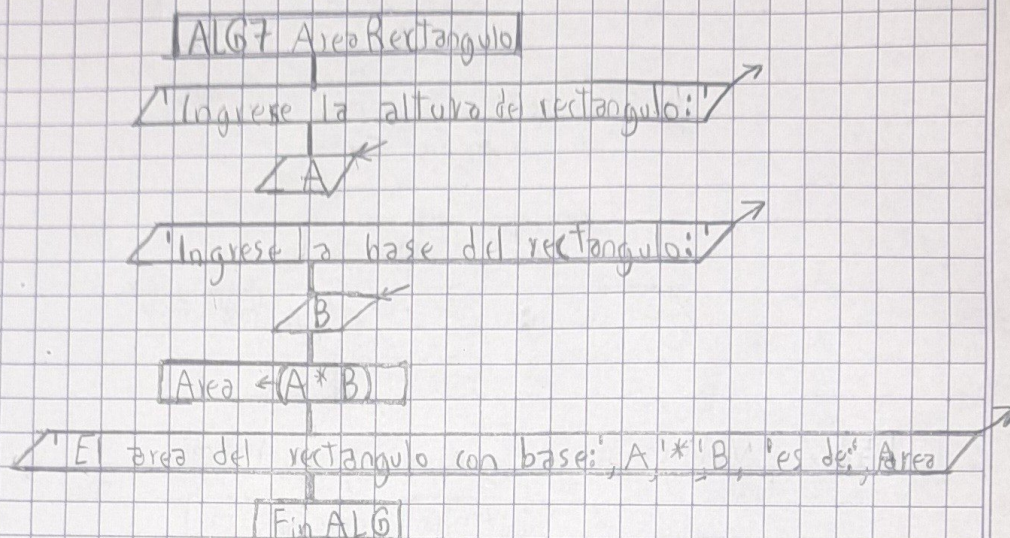 ALG7 Area Rectangulo
'Ingrese la altura del rectangulo:'
A
'Ingrese la base del rectangulo:'
B
Area ← (A * B)
'El area del rectangulo con base:', A, '*', B, 'es de:', Area
Fin ALG